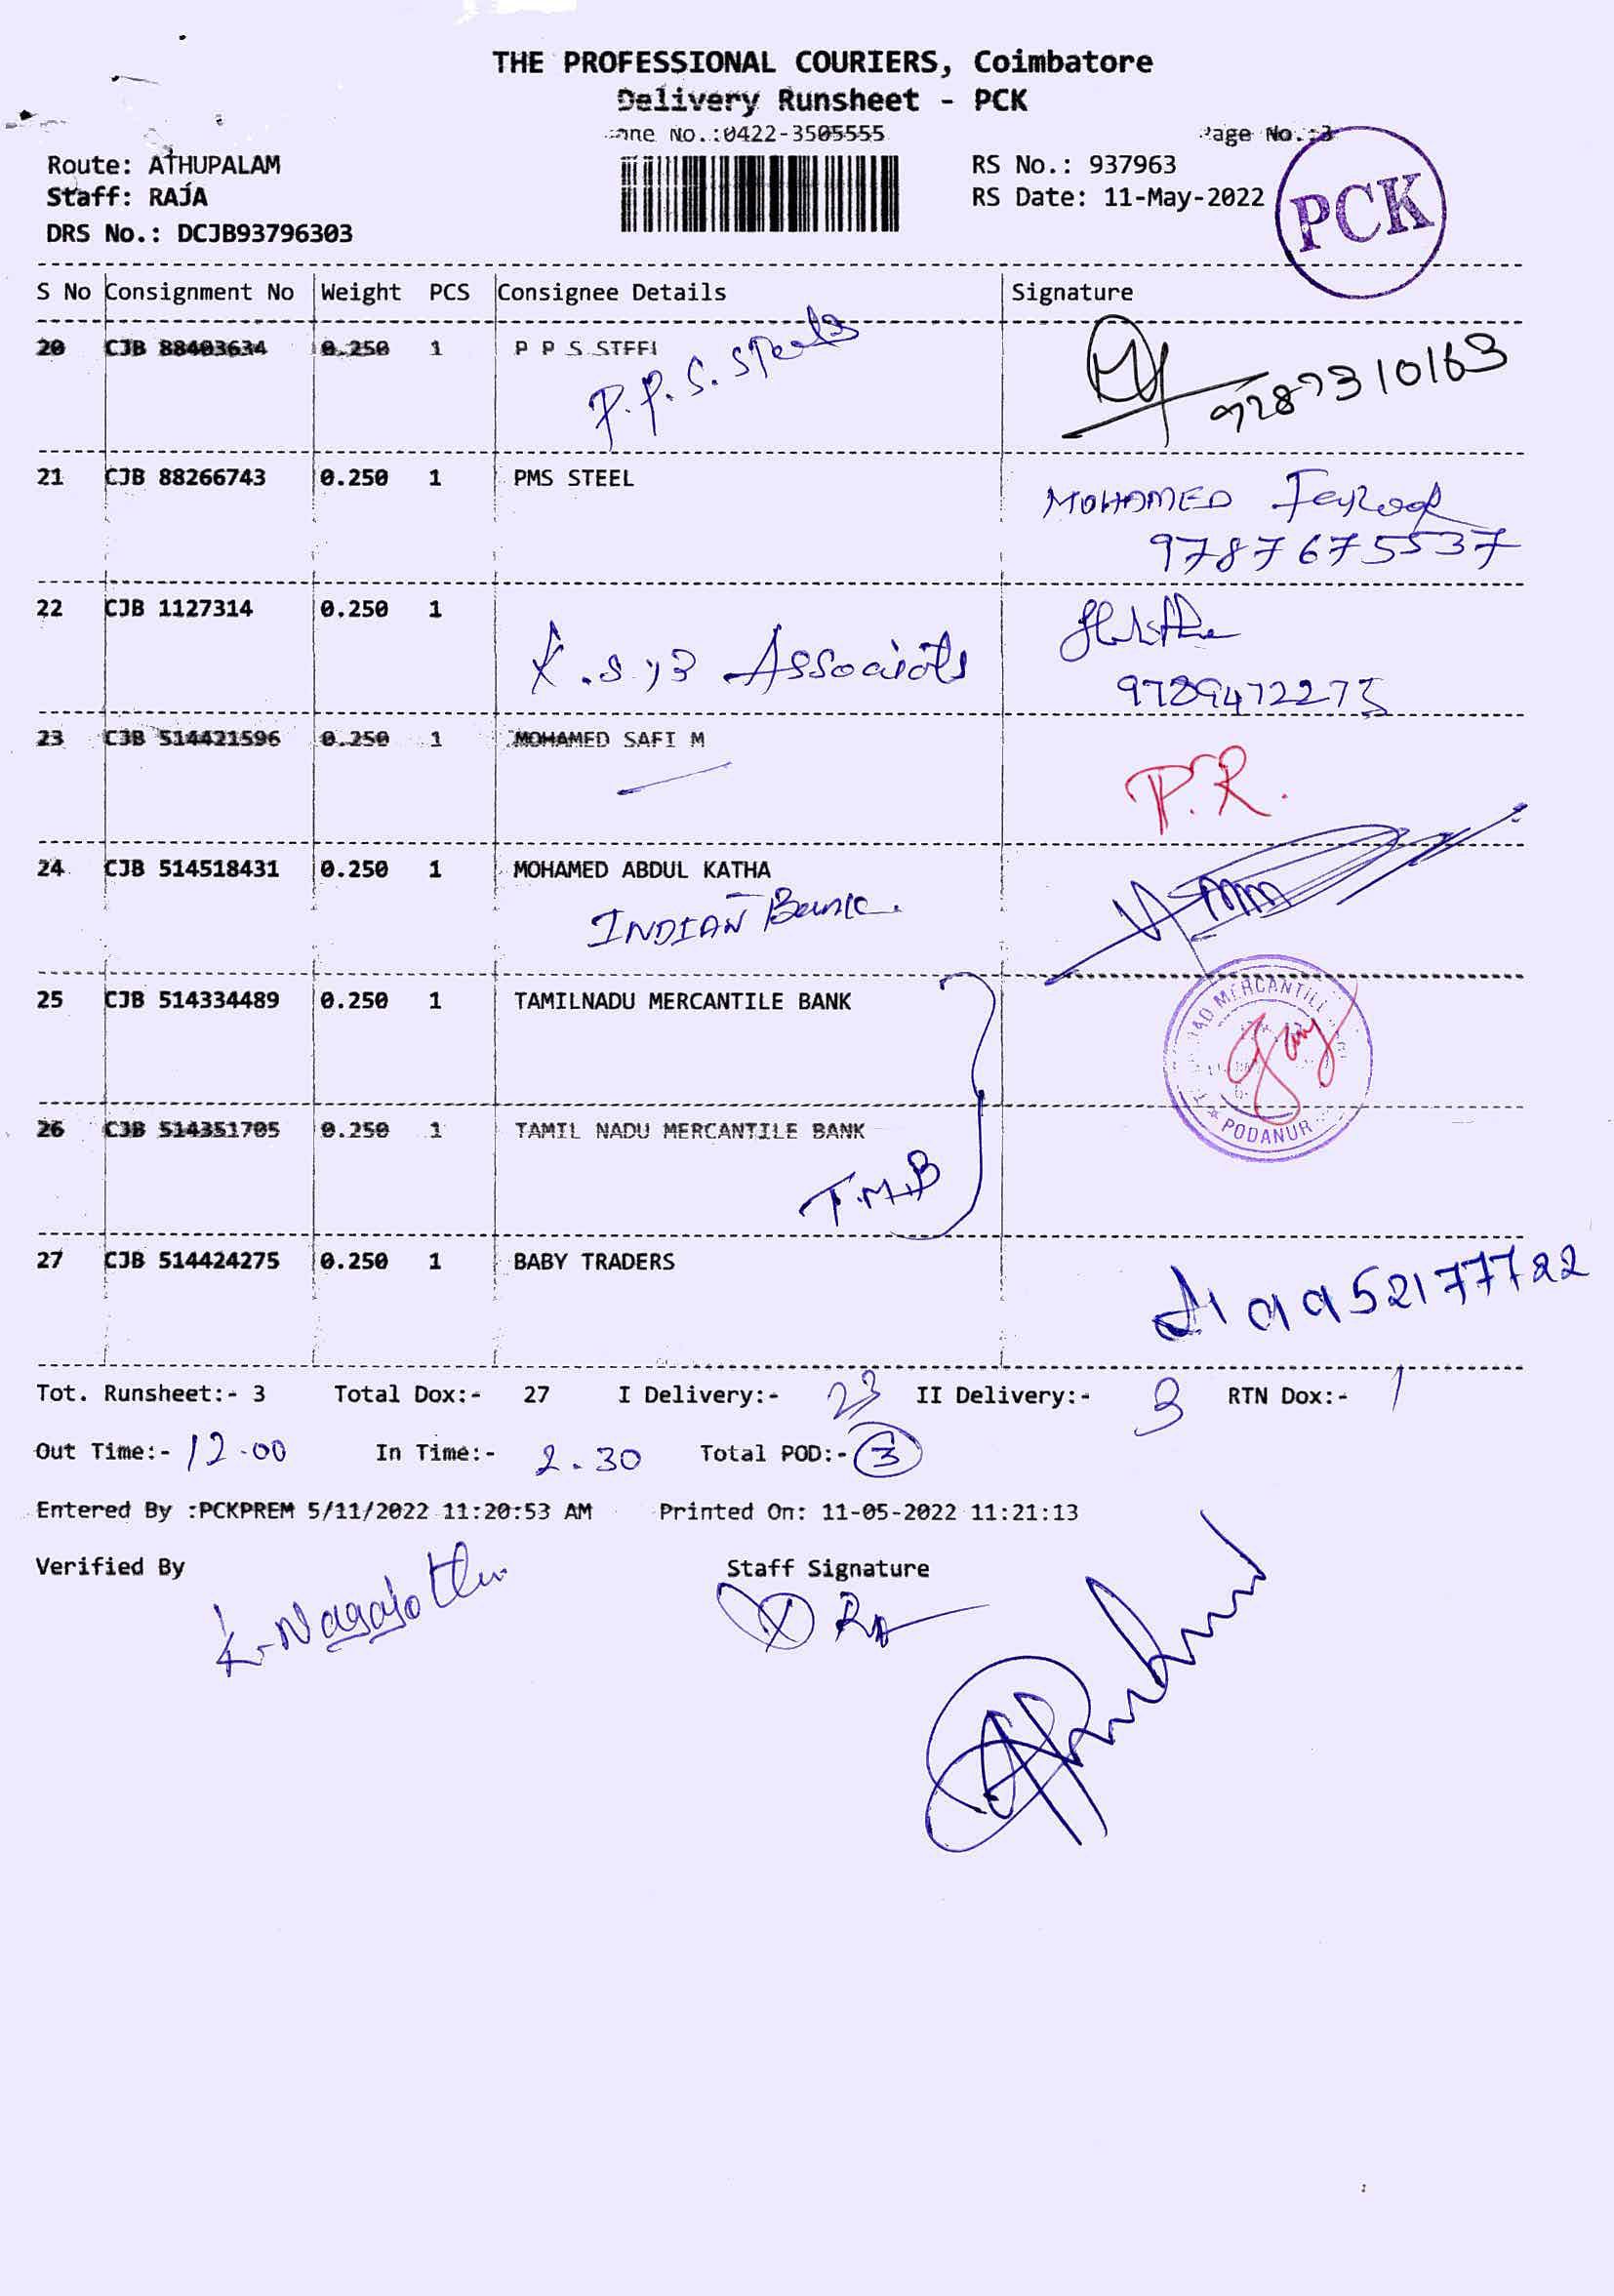 THE PROFESSIONAL COURIERS, Coimbatore
Delivery Runsheet - PCK
No.:0422-3505555
Page No.:3
Route: ATHUPALAM
RS No.: 937963
Staff: RAJA
RS Date: 11-May-2022
PCK
DRS No.: DCJB93796303
S No Consignment No Weight PCS Consignee Details Signature
20 CJB 88403634 0.250 1 P P S STEEL
P.P.S. Steels
9287310163
21 CJB 88266743 0.250 1 PMS STEEL
MOHAMED
9787675537
22 CJB 1127314 0.250 1
9789472275
23 CJB 514421596 0.250 1 MOHAMED SAFI M
P.R.
24 CJB 514518431 0.250 1 MOHAMED ABDUL KATHA
INDIAN Bank.
25 CJB 514334489 0.250 1 TAMILNADU MERCANTILE BANK
MERCANTILE
PODANUR
26 CJB 514351705 0.250 1 TAMIL NADU MERCANTILE BANK
T.M.B
27 CJB 514424275 0.250 1 BABY TRADERS
9952177722
Tot. Runsheet:- 3 Total Dox:- 27 I Delivery:- 23 II Delivery:- 3 RTN Dox:- 1
Out Time:- 12.00 In Time:- 2.30 Total POD:- 3
Entered By :PCKPREM 5/11/2022 11:20:53 AM Printed On: 11-05-2022 11:21:13
Verified By Staff Signature